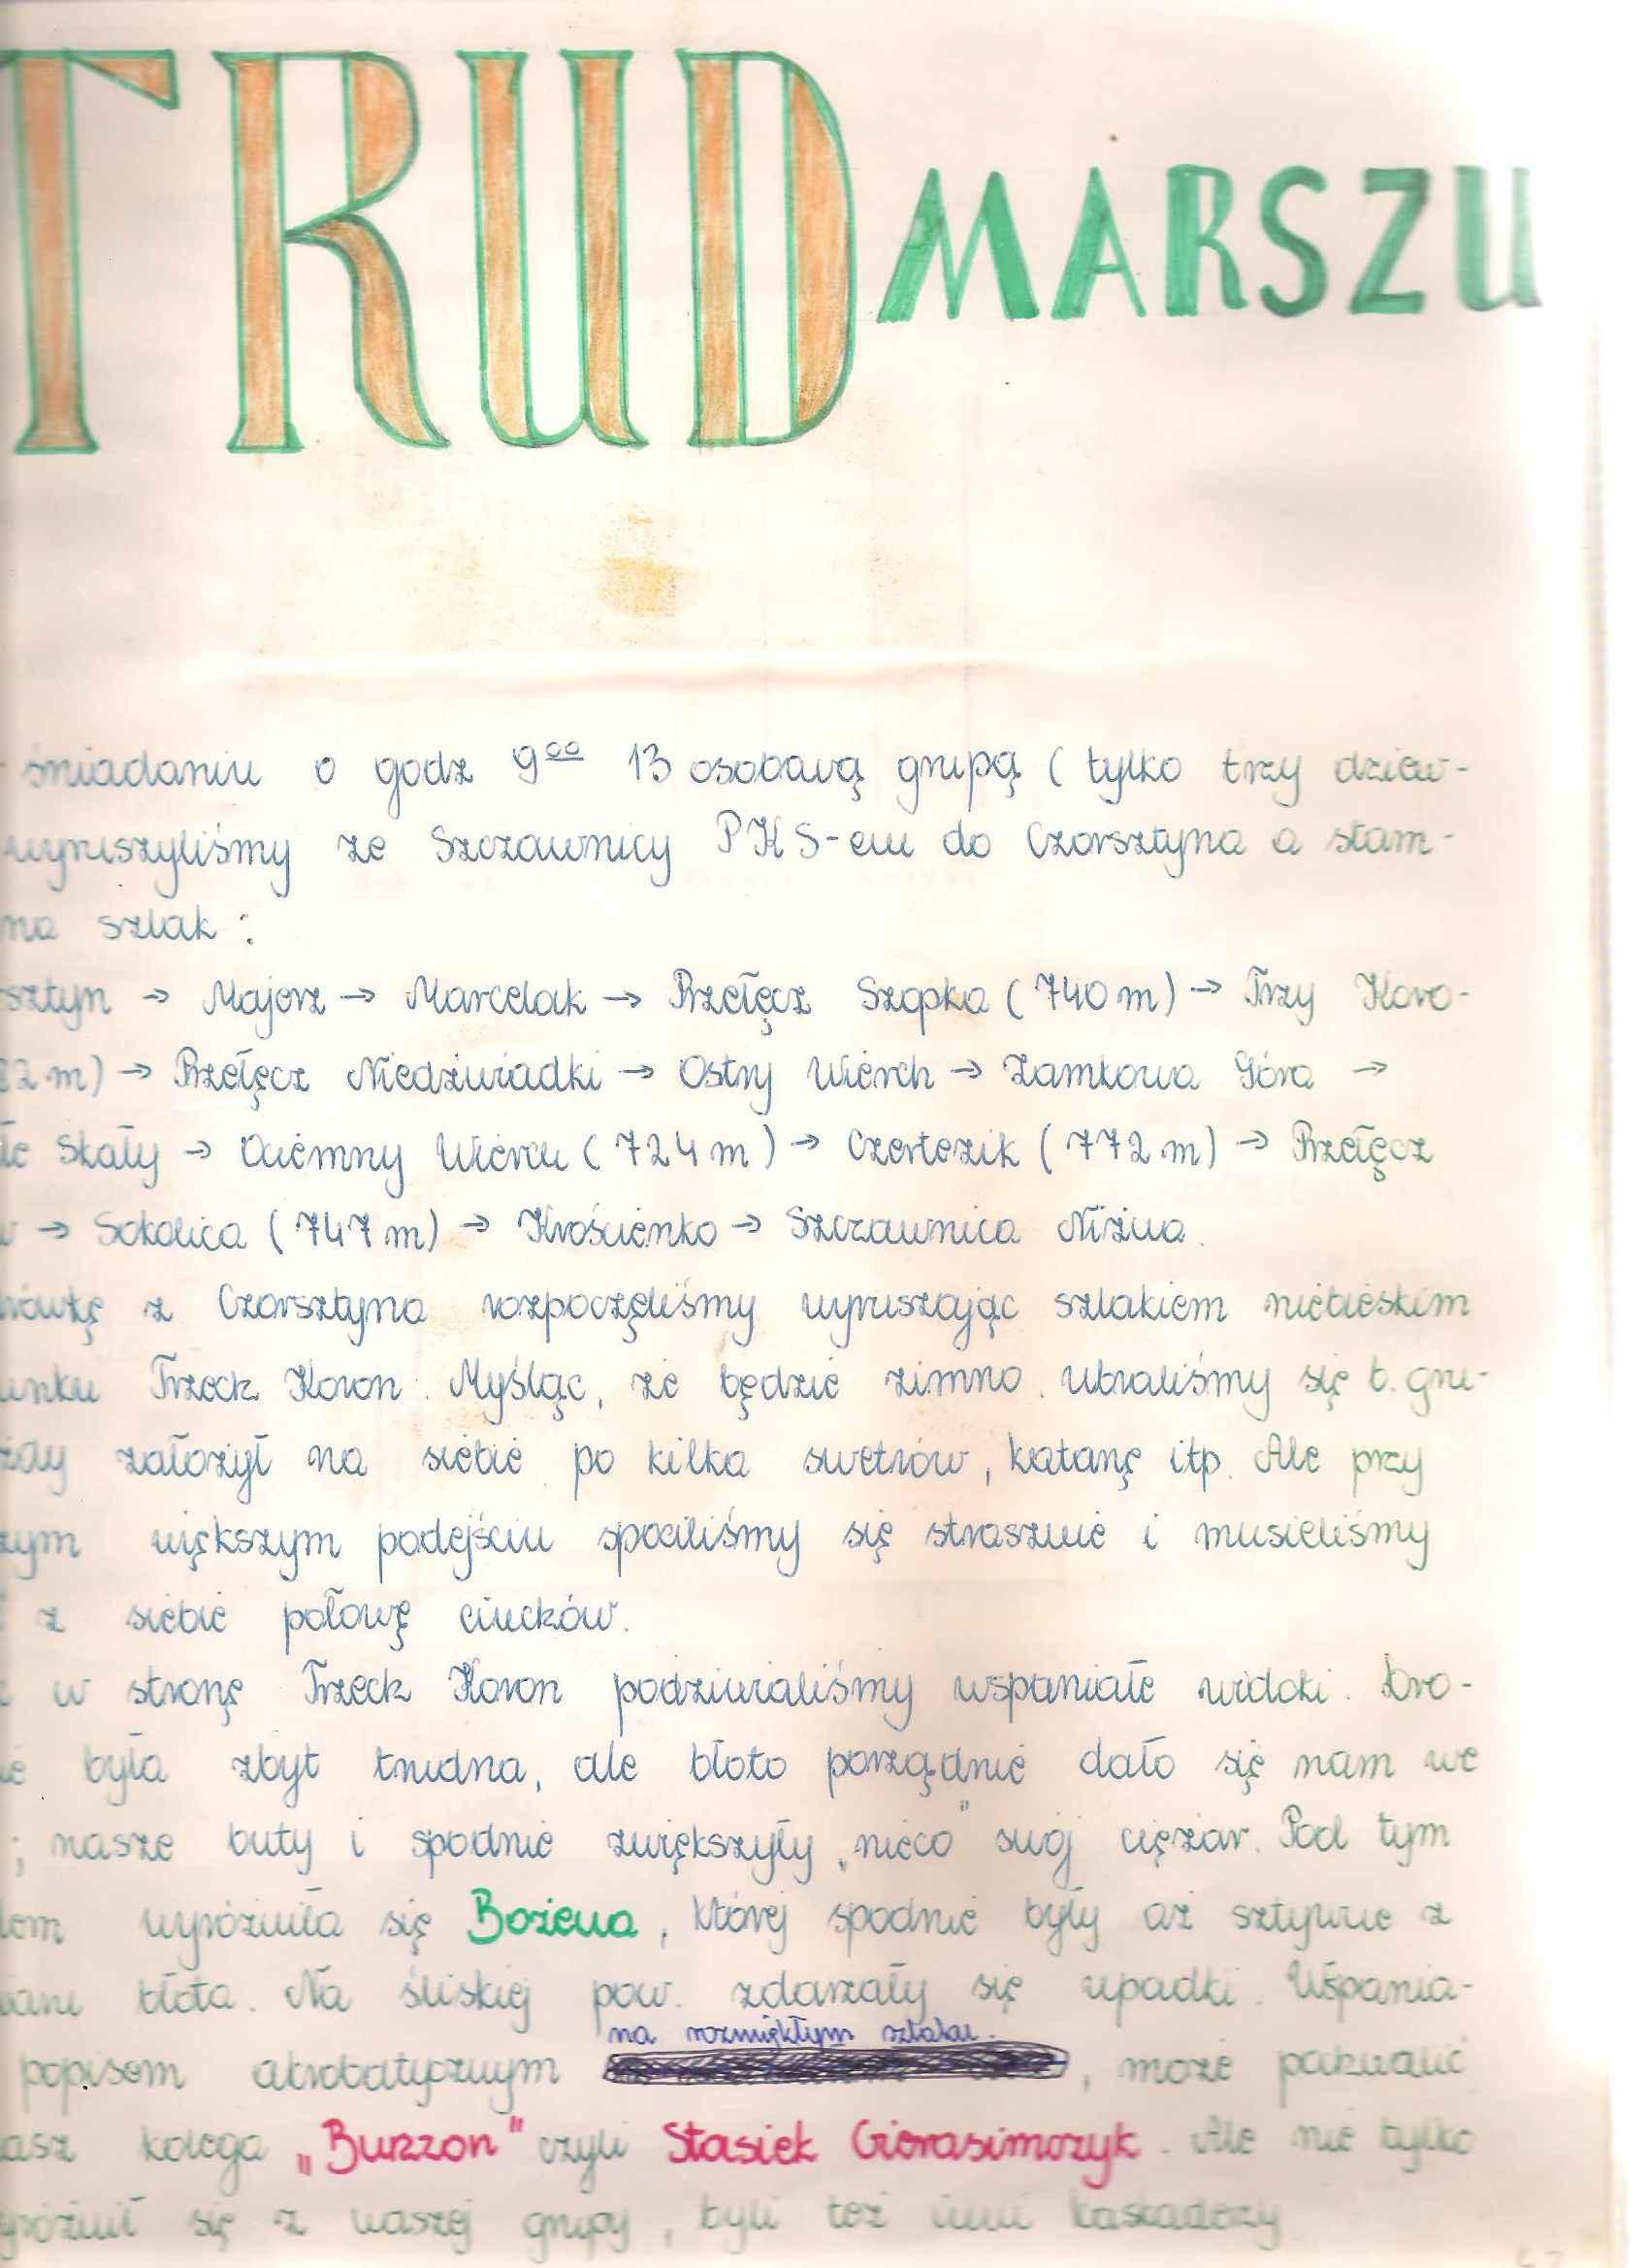 TRUD MARSZU
śniadaniu o godz 9⁰⁰ 13 osobową grupą ( tylko trzy dziew-
wyruszyliśmy ze Szczawnicy PKS-em do Czorsztyna a stam-
na szlak :
sztyn → Majerz → Marcelak → Przełęcz Szopka ( 740 m ) → Trzy Koro-
82 m) → Przełęcz Niedźwiadki → Ostry Wierch → Zamkowa Góra →
łe Skały → Ociemny Wierch ( 724 m ) → Czertezik ( 772 m ) → Przełęcz
→ Sokolica ( 747 m) → Krościenko → Szczawnica Niżna.
z Czorsztyna rozpoczęliśmy wyruszając szlakiem niebieskim
unku Trzech Koron. Myśląc, że będzie zimno. ubraliśmy się b. gru-
żdy założył na siebie po kilka swetrów, katanę itp. Ale przy
zym większym podejściu spociliśmy się strasznie i musieliśmy
z siebie połowę ciuchów.
w stronę Trzech Koron podziwialiśmy wspaniałe widoki. Dro-
ie była zbyt trudna, ale błoto porządnie dało się nam we
; nasze buty i spodnie zwiększyły „nieco" swój ciężar. Pod tym
dem wyróżniła się Bożena, której spodnie były aż sztywne z
błota. Na śliskiej pow. zdarzały się upadki. Wspania-
na rozmiękłym szlaku.
popisem akrobatycznym , może pochwalić
asz kolega „Buzzon" czyli Stasiek Gierasimczyk. Ale nie tylko
yróżnił się z naszej grupy, byli też inni kaskaderzy